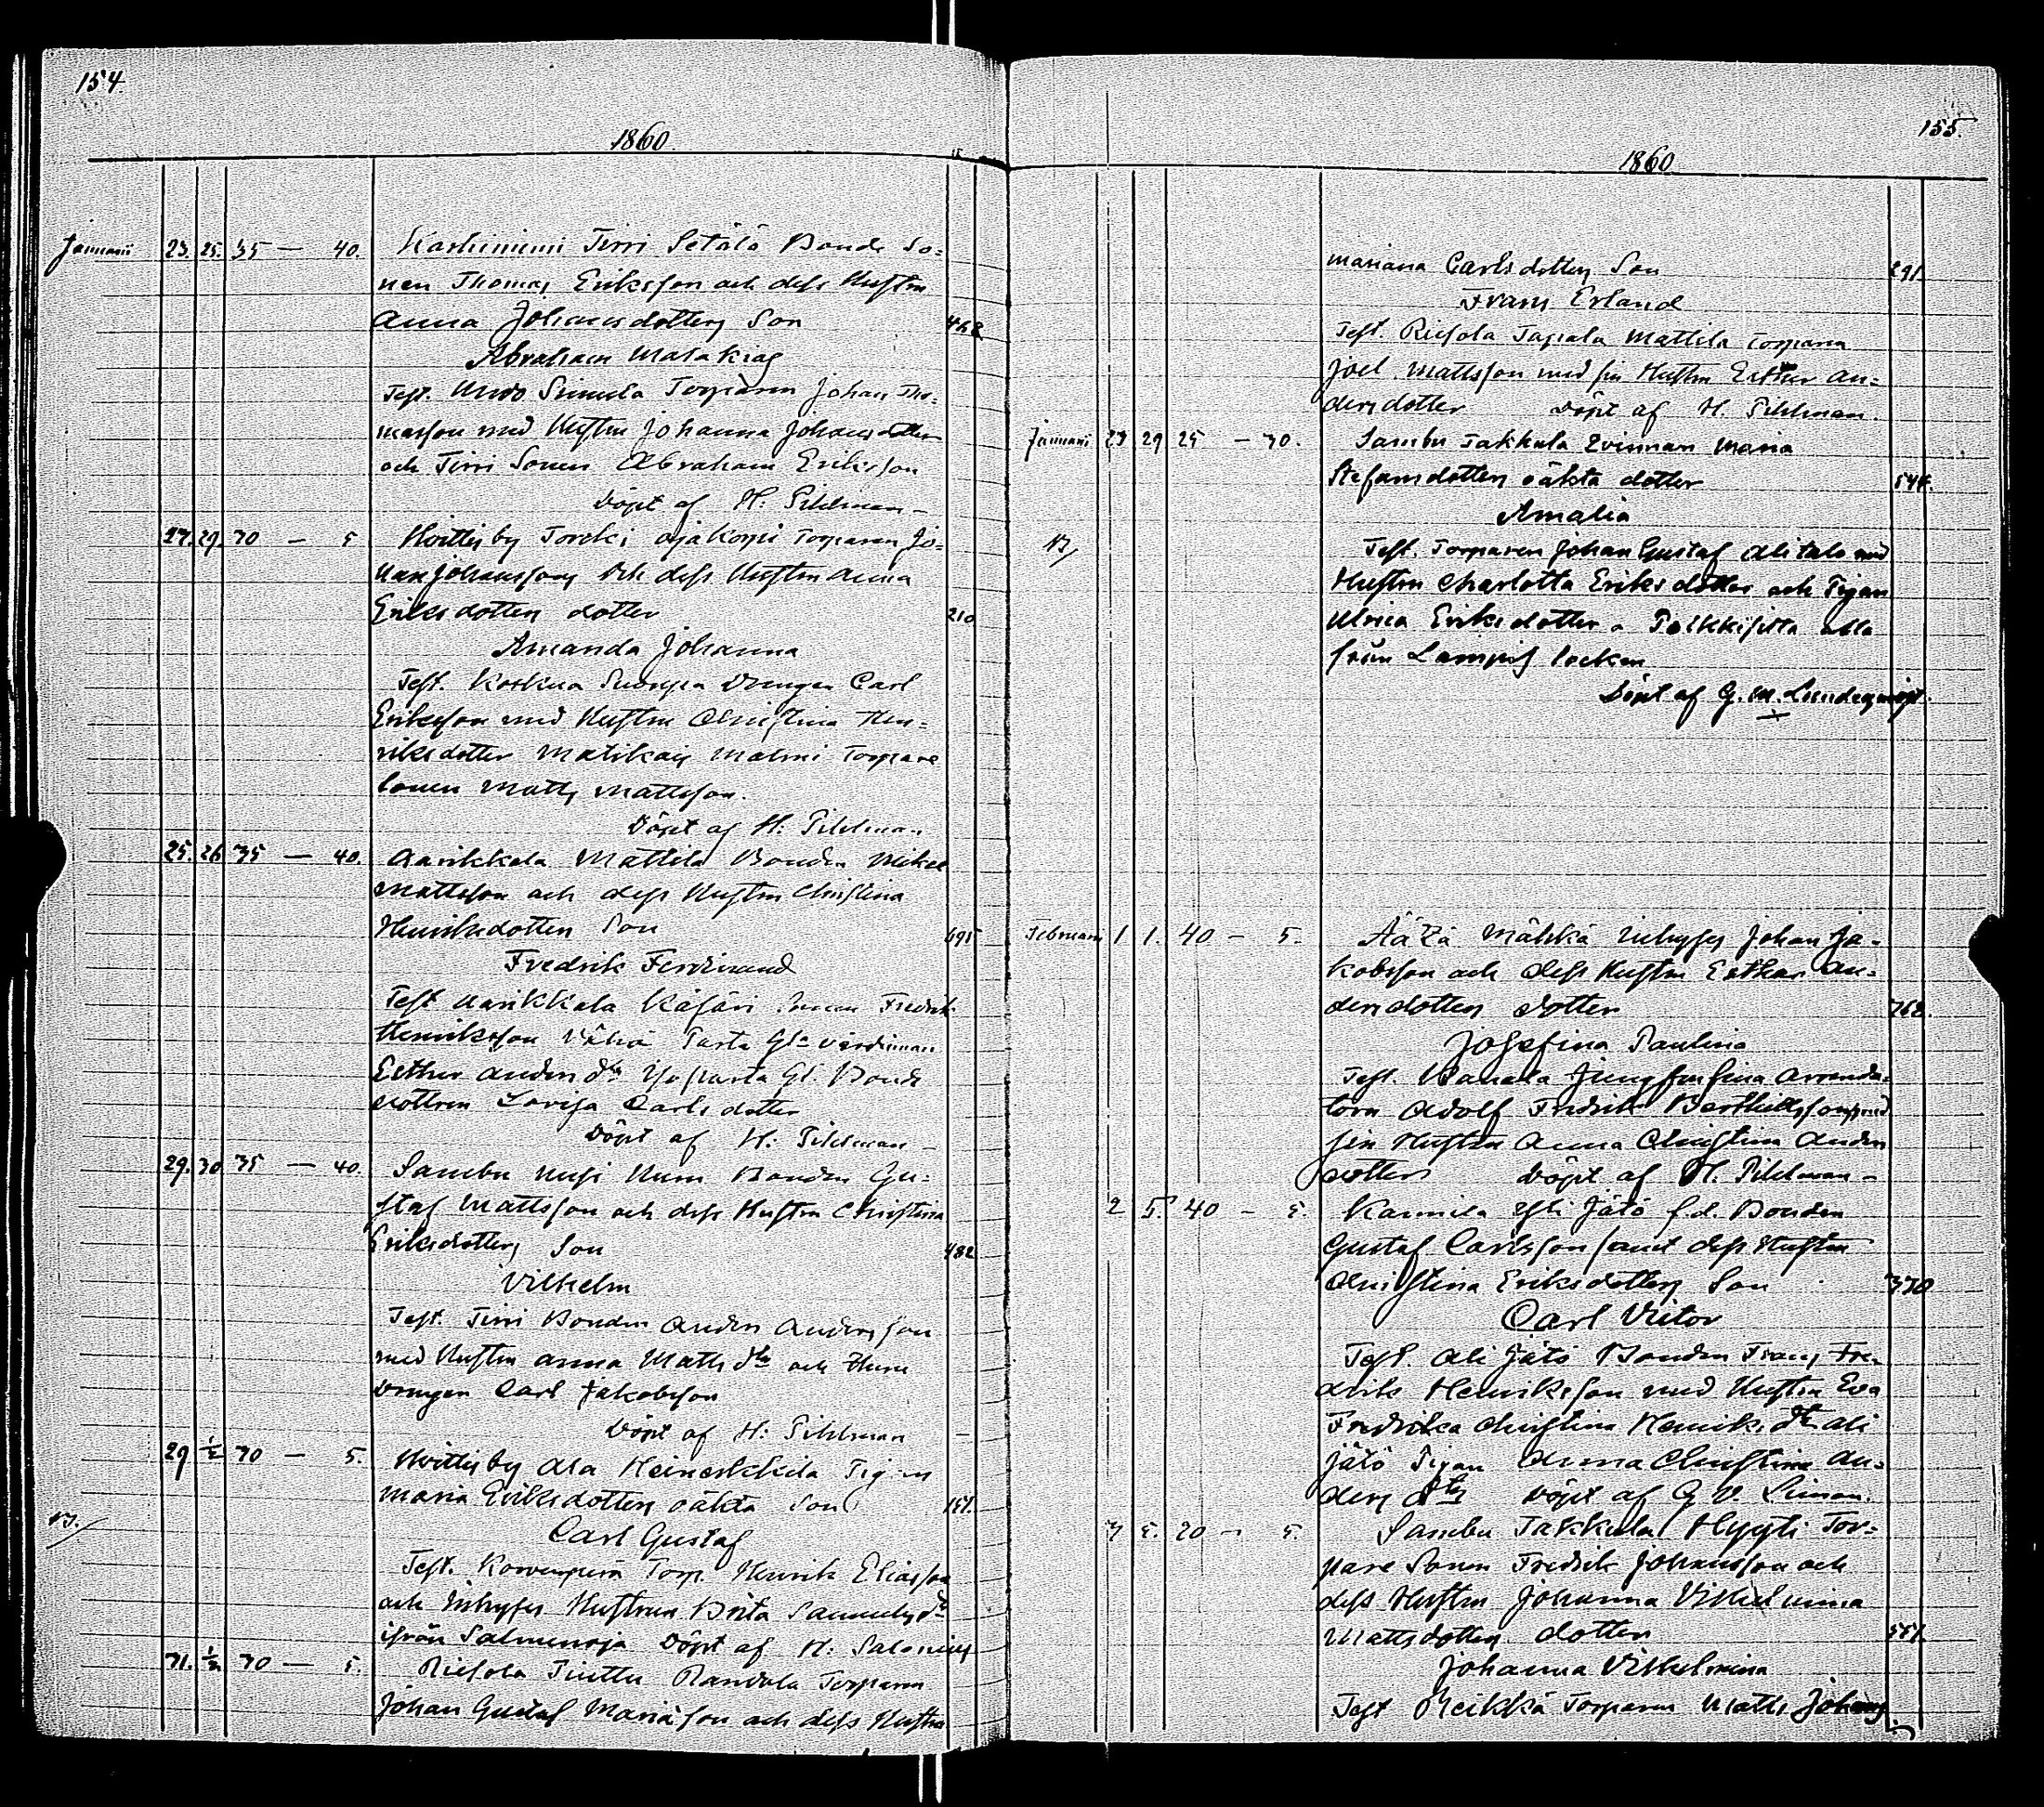 154.
1860.
Januarii 23. 25. 35 — 40. Karhiniemi Tirri Setälä Bonde So=
nen Thomas Eriksson och dess Hustru
Anna Johansdotters Son 468
Abraham Malakias
Test. Torparen Johan Tho=
masson med Hustru Johanna Johansdotter
och Tirri Sonen Abraham Eriksson
Döpt af H: Pihlman –
27. 29. 30 — 5 Hvittisby Torcki Ojakorpi Torparen Jo=
han Johansson och dess Hustru Anna
Eriksdotters dotter 210
Amanda Johanna
Test. Koskua Drengen Carl
Eriksson med Hustru Christina Hen=
riksdotter Malmi Torpare
Sonen Matts Mattsson.
Döpt af H: Pihlman
25. 26 35 — 40. Aarikkala Mattila Bonden Mikel
Mattsson och dess Hustru Christina
Henriksdotters Son 695
Fredrik Ferdinand
Test Aarikkala Fredrik
Henriksson Vähä Parta Gla Värdinnan
Esther Anders dtr Yli Gl. Bonde
dottren Lovisa Carlsdotter
Döpt af H: Pihlman –
29. 30 35 — 40. Sambu Uusi Bonden Gu=
staf Mattsson och dess Hustru Christina
Eriksdotters Son 482
Vilhelm
Test. Tirri Bonden Anders Andersson
med Hustru Anna Matts dtr och
Drengen Carl Jakobsson
Döpt af H: Pihlman –
29 1/2 30 — 5. Hvittisby Ala Heineskkila Pigan
Maria Eriksdotters oäkta Son 157.
Carl Gustaf
Test. Korvenperä Torp. Henrik Eliasson
och Inhyses Hustrun Brita Samuels dtr
ifrån Salmenoja Döpt af H: Salonius
31. 1/2 30 — 5. Riesola Tuittu Randala Torparen
Johan Gustaf Mariäson och dess Hustru
155.
1860
Mariana Carlsdotters Son 291
Frans Erland
Test. Riesola Tapala Mattila Torparen
Joel Mattsson med sin Hustru Esther An=
dersdotter Döpt af H. Pihlman.
Januarii 23 29 25 — 30. Sambu Takkula Qvinnan Maria
Stefansdotters oäkta dotter 544.
Amalia
Test. Torparen Johan Gustaf Alitalo med
Hustru Charlotta Eriksdotter och Pigan
Ulrica Eriksdotter a Palkkisilta alla
från Lampis Socken
Döpt af G. M. Lundeqvist.
Februarii 1 1. 40 — 5. Äätzä Mähkä Inhyses Johan Ja=
kobsson och dess Hustru Esther An=
dersdotters dotter 768.
Josefina Paulina
Test. Arrenda=
torn Adolf Fredrik Berthellsson med
sin Hustru Anna Christina Anders
dotter Döpt af H. Pihlman –
2 5. 40 — 5. Kannila Yli Jätö f.d. Bonden
Gustaf Carlsson samt dess Hustru
Christina Eriksdotters Son 370
Carl Victor
Test. Ali Jätö Bonden Frans Fre=
drik Henriksson med Hustru Eva
Fredrika Christina Henriks dtr Ali
Jätö Pigan Anna Christina An=
ders dtr Döpt af G. V. Liman.
3 5. 20 — 5. Sambu Takkula Hyyti Tor=
pare Sonen Fredrik Johansson och
dess Hustru Johanna Vilhelmina
Mattsdotters dotter 551.
Johanna Vilhelmina
Test Reikkä Torparen Matts Johans